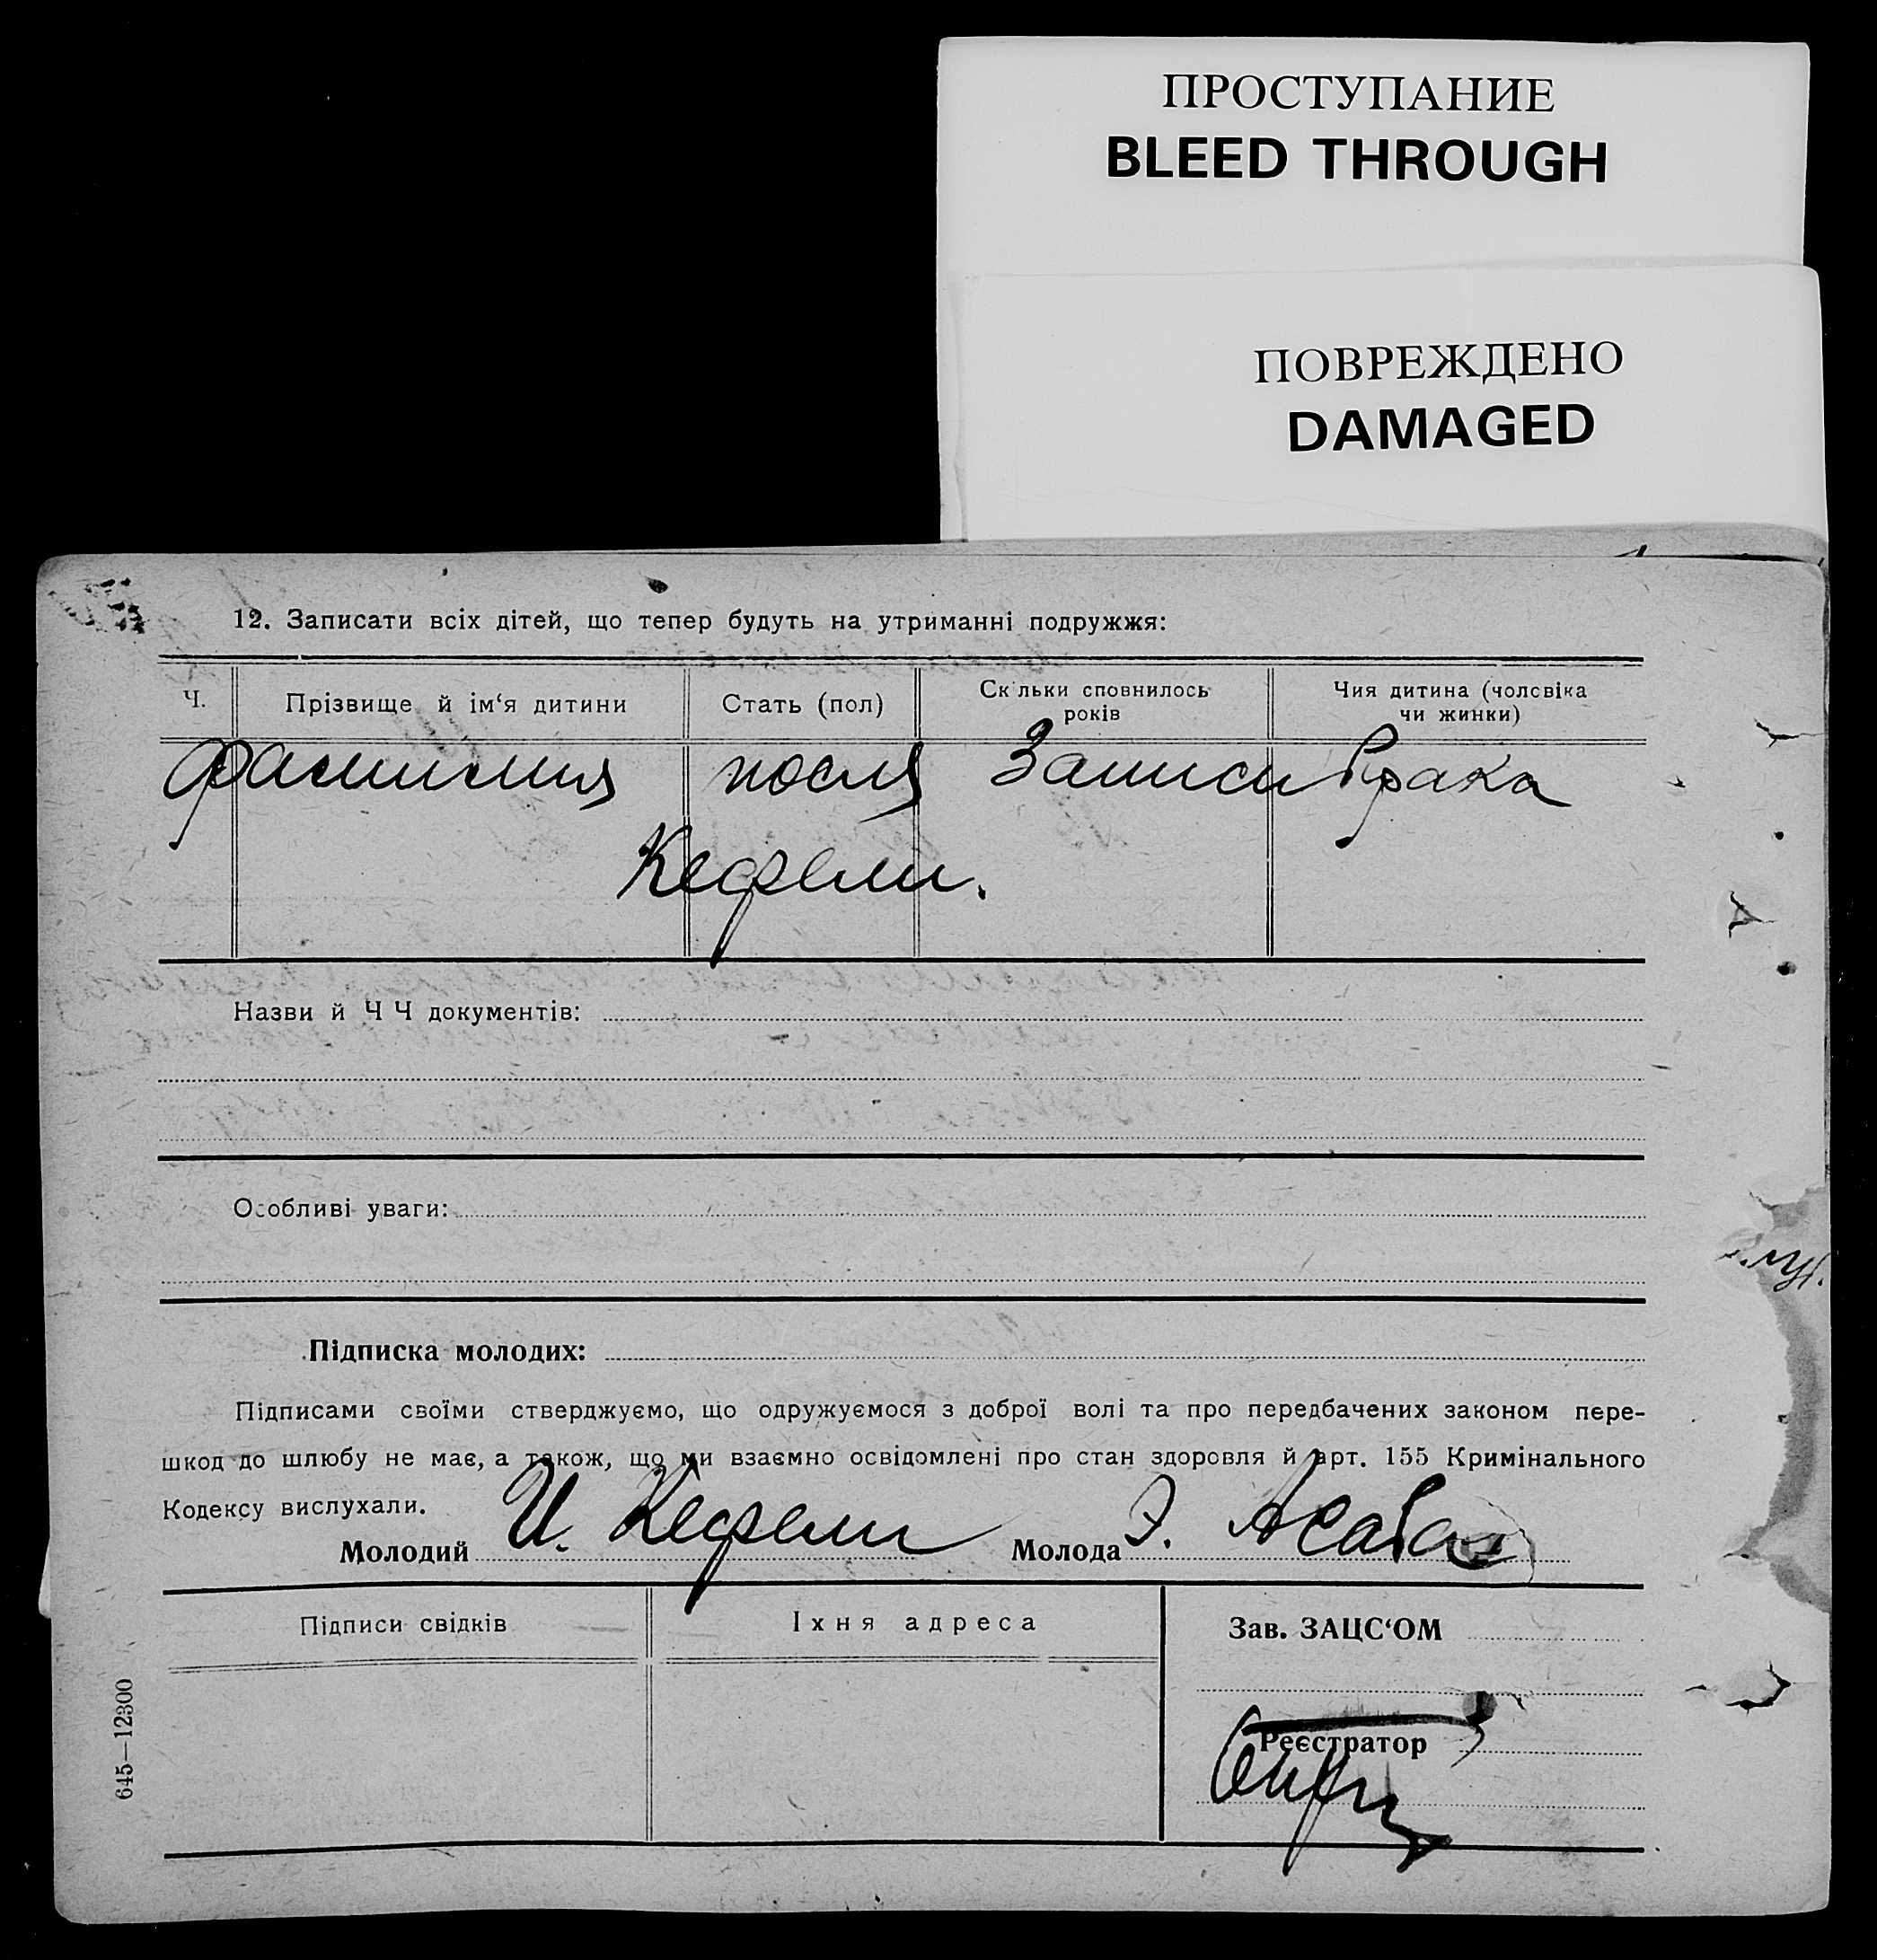 ПРОСТУПАНИЕ
BLEED THROUGH
ПОВРЕЖДЕНО
DAMAGED
12. Записати всіх дітей, що тепер будуть на утриманні подружжя:
Ч. Прізвище й ім‘я дитини Стать (пол) Скільки сповнилось років Чия дитина (чоловіка чи жинки)
Фамилия после записи брака
Кефели.
Назви й Ч Ч документів:
Особливі уваги:
Підписка молодих:
Підписами своїми стверджуємо, що одружуємося з доброї волі та про передбачених законом пере-
шкод до шлюбу не має, а також, що ми взаємно освідомлені про стан здоровля й арт. 155 Кримінального
Кодексу вислухали.
Молодий И. Кефели Молода Э. Асаба
Підписи свідків Іхня адреса Зав. ЗАЦС‘ОМ
Реєстратор
645—12300